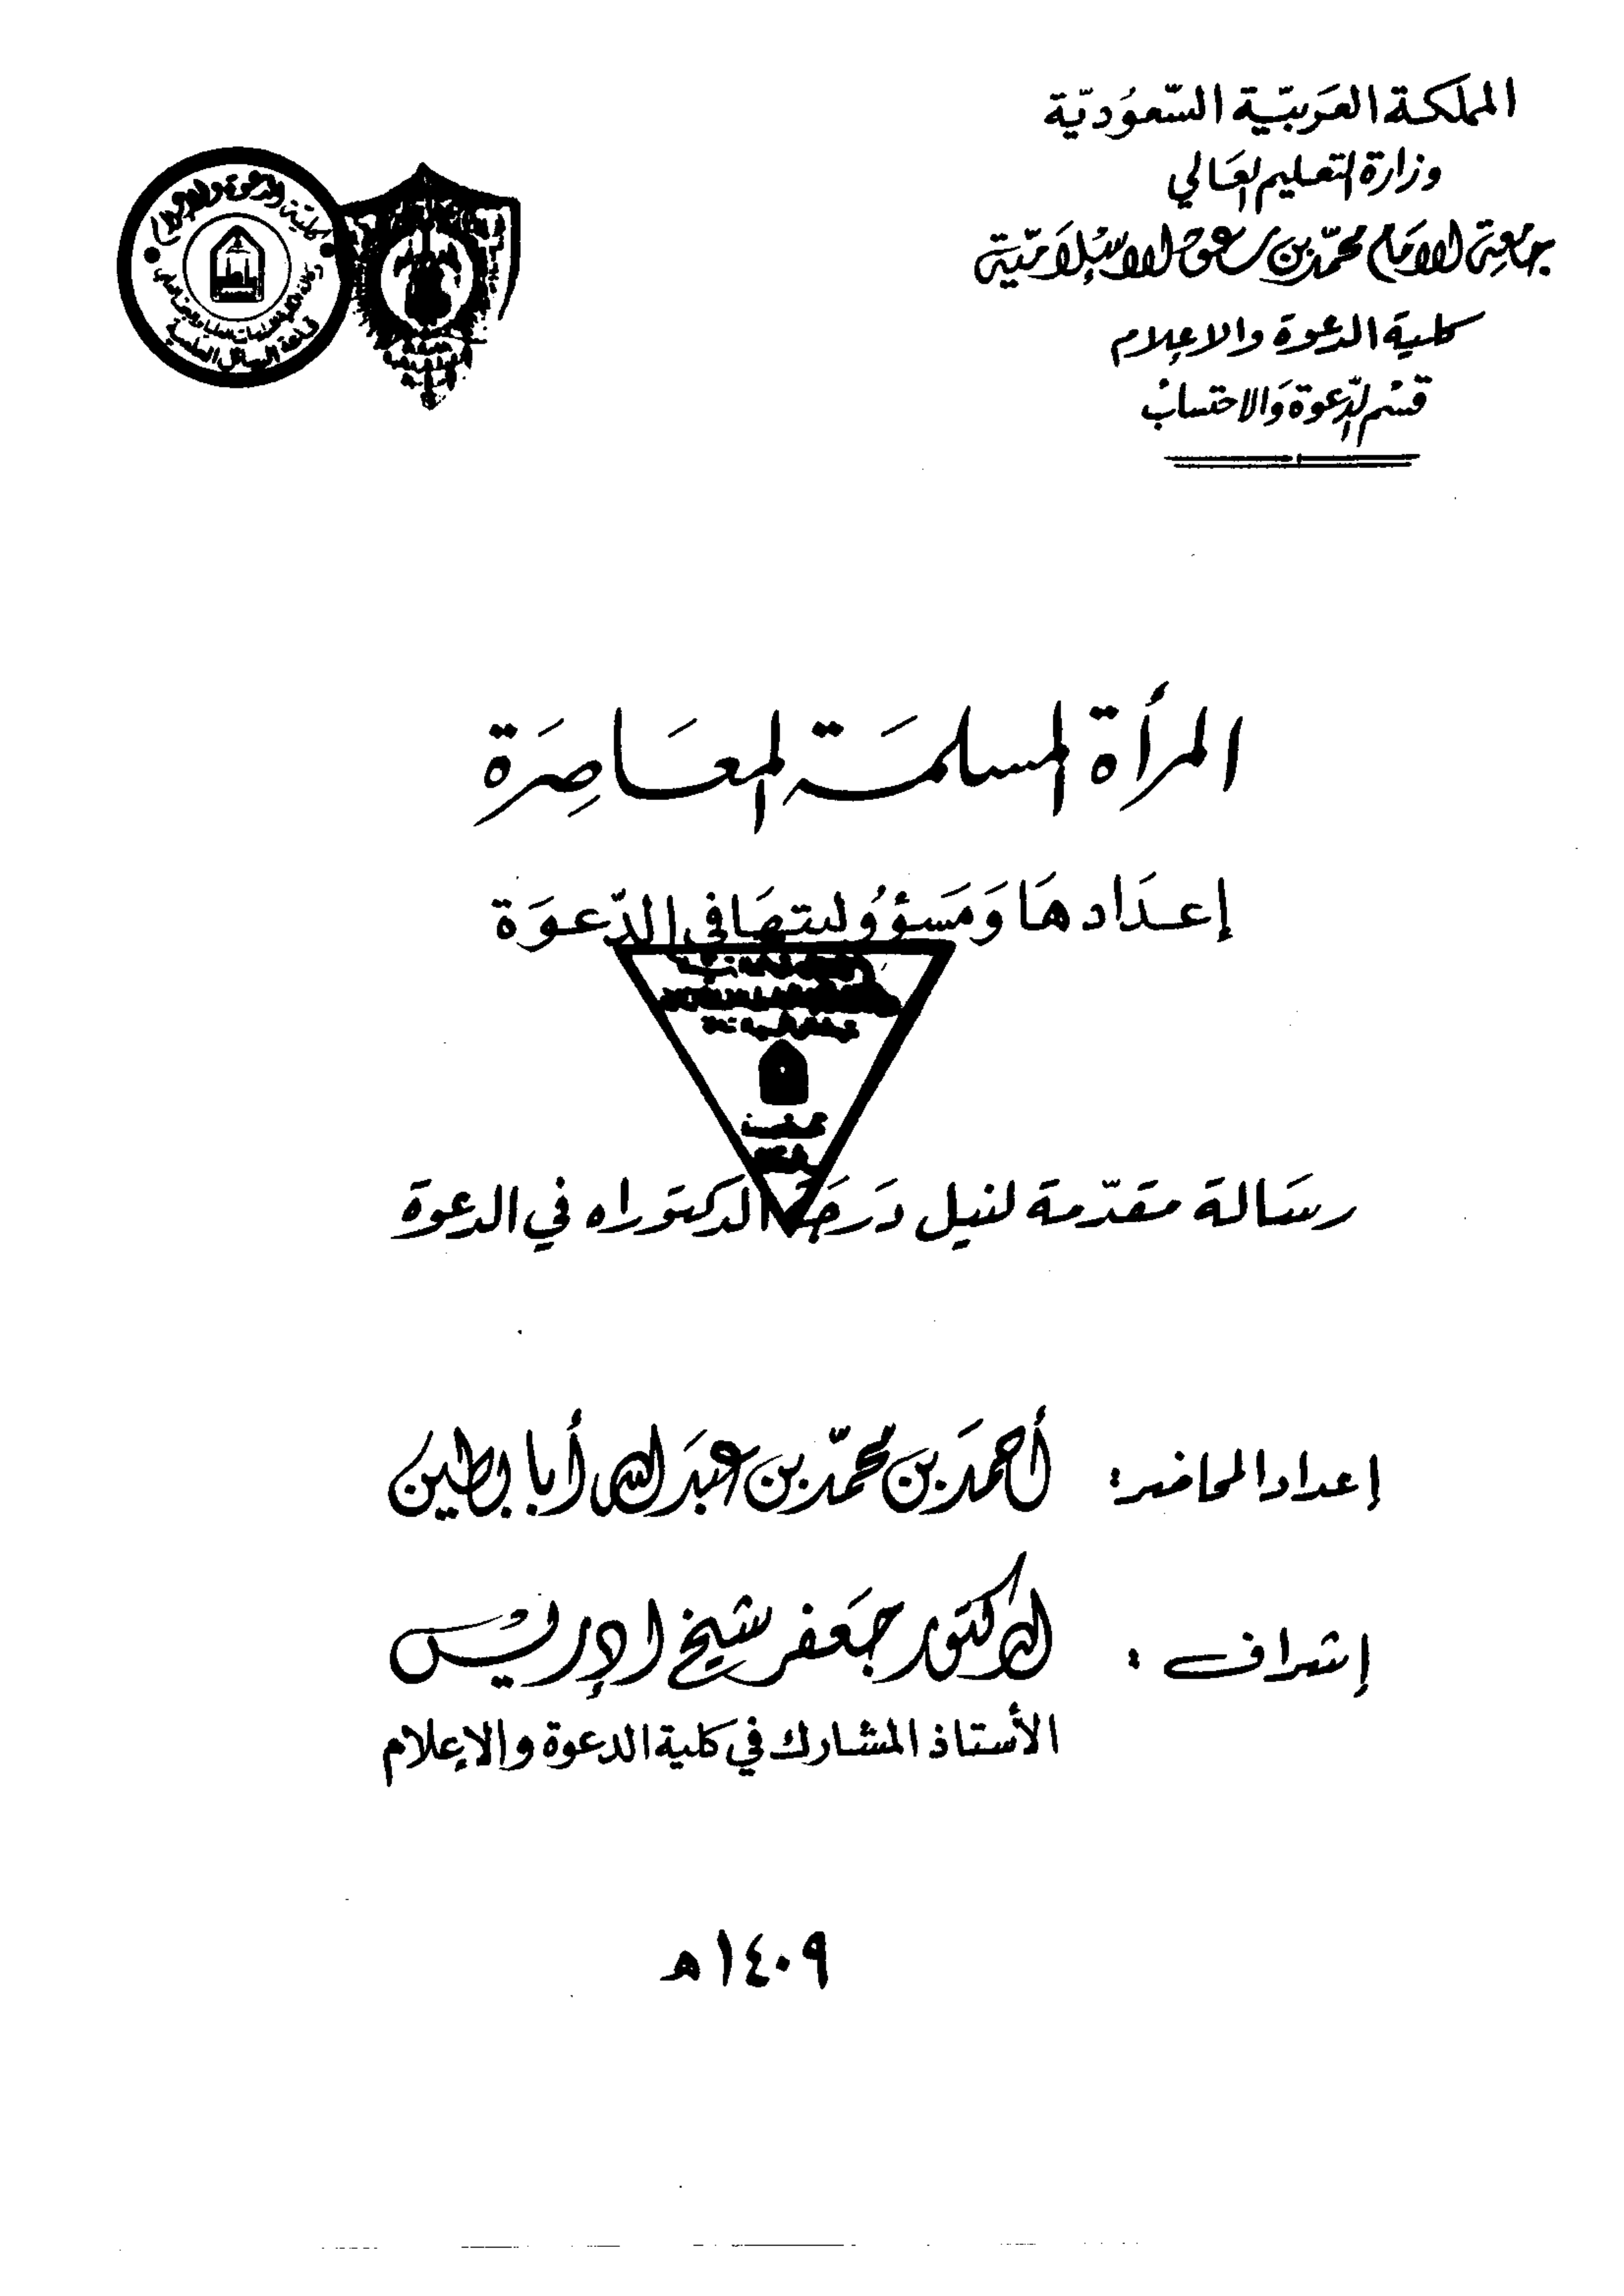 المملكة العَربيّة السّعوُديّة
وزارة التعليم العَالي
جامعة الامَام محمّد بن سعود الاسْلاَميّة
كلية الدعوة والاعلام
قسْم الدّعوة وَالاحتسابْ
كلية الدعوة والإعلام
قاعة الرسائل الجامعية
المرأة المسلمَة المعَاصِرَة
إعدَادهَا وَمَسؤوُليتهَا في الدّعوَة
رسَالة مقدّمة لنيل دَرَجَة الدكتوراه في الدعوة
إعداد المحاضر: أحمَد بن محمّد بن عبدَ الله أبا بطين
إشراف : الدكتور جعَفر شيخ إدريسْ
الأستاذ المشارك في كلية الدعوة والإعلام
١٤٠٩ه